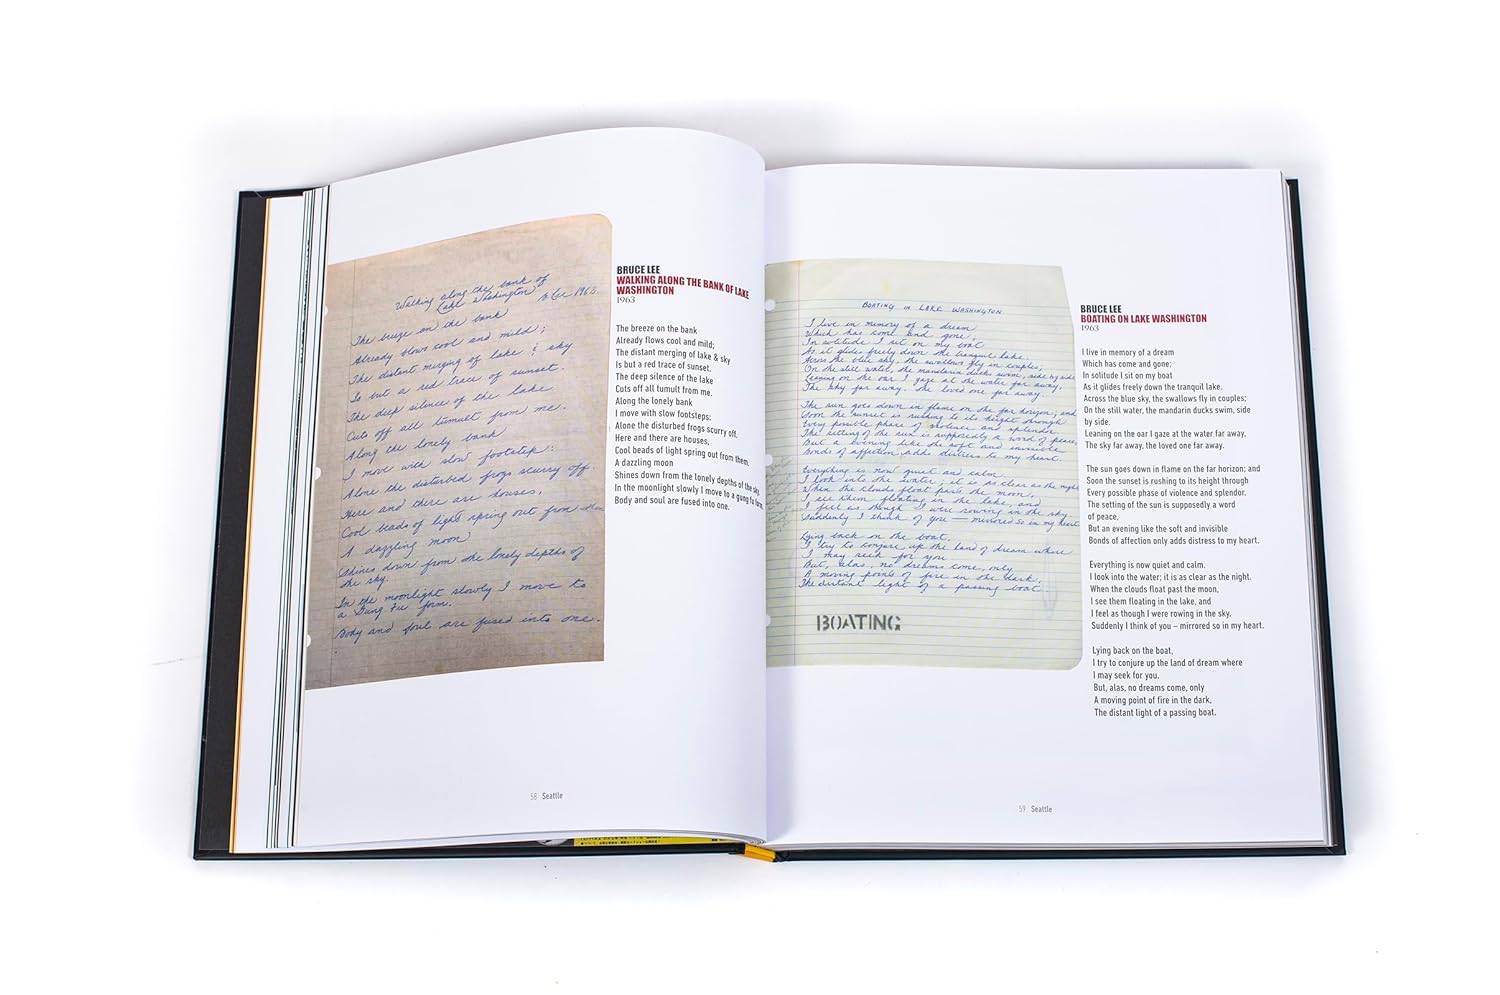 Walking along the bank of
Lake Washington B Lee 1963.
The breeze on the bank
Already blows cool and mild;
The distant merging of lake & sky
Is but a red trace of sunset.
The deep silence of the lake
Cuts off all tumult from me.
Along the lonely bank
I move with slow footstep:
Alone the disturbed frogs scurry off.
Here and there are houses,
Cool beads of light spring out from them
A dazzling moon
Shines down from the lonely depths of
the sky.
In the moonlight slowly I move to
a Gung Fu form.
Body and soul are fused into one.
BRUCE LEE
WALKING ALONG THE BANK OF LAKE
WASHINGTON
1963
The breeze on the bank
Already flows cool and mild;
The distant merging of lake & sky
Is but a red trace of sunset.
The deep silence of the lake
Cuts off all tumult from me.
Along the lonely bank
I move with slow footsteps:
Alone the disturbed frogs scurry off.
Here and there are houses,
Cool beads of light spring out from them.
A dazzling moon
Shines down from the lonely depths of the sky.
In the moonlight slowly I move to a gung fu form.
Body and soul are fused into one.
58 Seattle
BOATING IN LAKE WASHINGTON
I live in memory of a dream
Which has come and gone;
In solitude I sit on my boat
As it glides freely down the tranquil lake.
Across the blue sky, the swallows fly in couples;
On the still water, the mandarin ducks swim, side by side
Leaning on the oar I gaze at the water far away,
The sky far away, the loved one far away.
The sun goes down in flame on the far horizon; and
Soon the sunset is rushing to its height through
Every possible phase of violence and splendor.
The setting of the sun is supposedly a word of peace,
But a evening like the soft and invisible
Bonds of affection adds distress to my heart.
Everything is now quiet and calm.
I look into the water; it is as clear as the night
When the clouds float pass the moon,
I see them floating in the lake, and
I feel as though I were rowing in the sky.
Suddenly I think of you — mirrored so in my heart
Lying back on the boat,
I try to conjure up the land of dream where
I may seek for you
But, alas, no dreams come, only
A moving point of fire in the dark,
The distant light of a passing boat.
BOATING
BRUCE LEE
BOATING ON LAKE WASHINGTON
1963
I live in memory of a dream
Which has come and gone;
In solitude I sit on my boat
As it glides freely down the tranquil lake.
Across the blue sky, the swallows fly in couples;
On the still water, the mandarin ducks swim, side
by side.
Leaning on the oar I gaze at the water far away,
The sky far away, the loved one far away.
The sun goes down in flame on the far horizon; and
Soon the sunset is rushing to its height through
Every possible phase of violence and splendor.
The setting of the sun is supposedly a word
of peace,
But an evening like the soft and invisible
Bonds of affection only adds distress to my heart.
Everything is now quiet and calm.
I look into the water; it is as clear as the night.
When the clouds float past the moon,
I see them floating in the lake, and
I feel as though I were rowing in the sky.
Suddenly I think of you – mirrored so in my heart.
Lying back on the boat,
I try to conjure up the land of dream where
I may seek for you.
But, alas, no dreams come, only
A moving point of fire in the dark,
The distant light of a passing boat.
59 Seattle